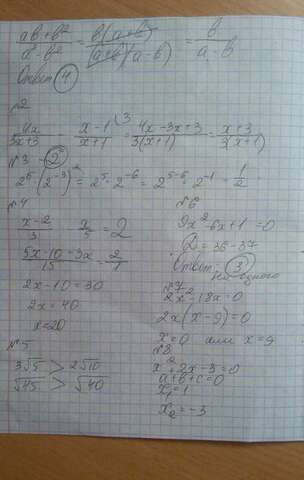 (ab+b²)/(a²-b²) = b(a+b)/((a+b)(a-b)) = b/(a-b)
Ответ 4
№2
4x/(3x+3) - (x-1)/(x+1) \3 = (4x-3x+3)/(3(x+1)) = (x+3)/(3(x+1))
№3 - 2
2⁵(2⁻³)² = 2⁵·2⁻⁶ = 2⁵⁻⁶ = 2⁻¹ = 1/2
№4
(x-2)/3 - x/5 = 2
(5x-10-3x)/15 = 2/1
2x-10=30
2x=40
x=20
№5
3√5 > 2√10
√45 > √40
№6
9x²-6x+1=0
D=36-37
Ответ 3
№7
2x²-18x=0
2x(x-9)=0
x=0 или x=9
№8
x²+2x-3=0
a+b+c=0
x₁=1
x₂=-3